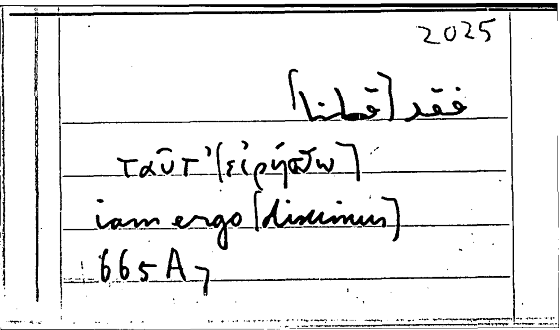 2025
فقد [قلنا]
ταῦτ' [εἰρήσθω]
iam ergo [diximus]
665A7